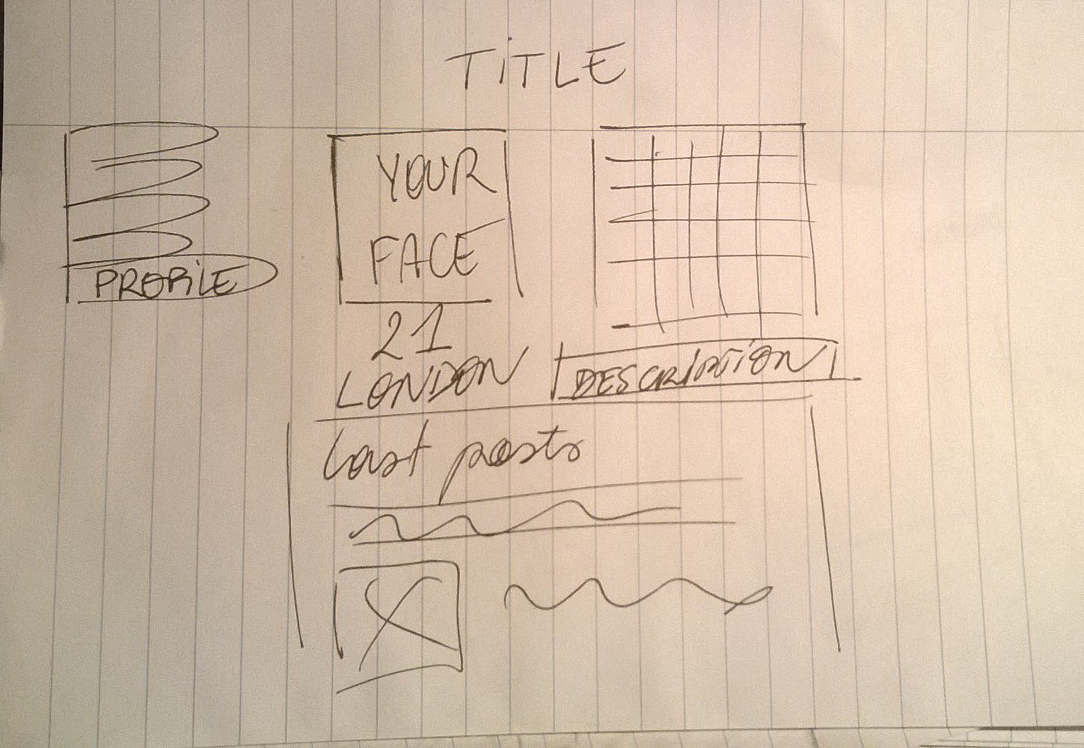 TiTLE
PROFiLE
YOUR
FACE
21
LONDON
DESCRIPTION
last posts